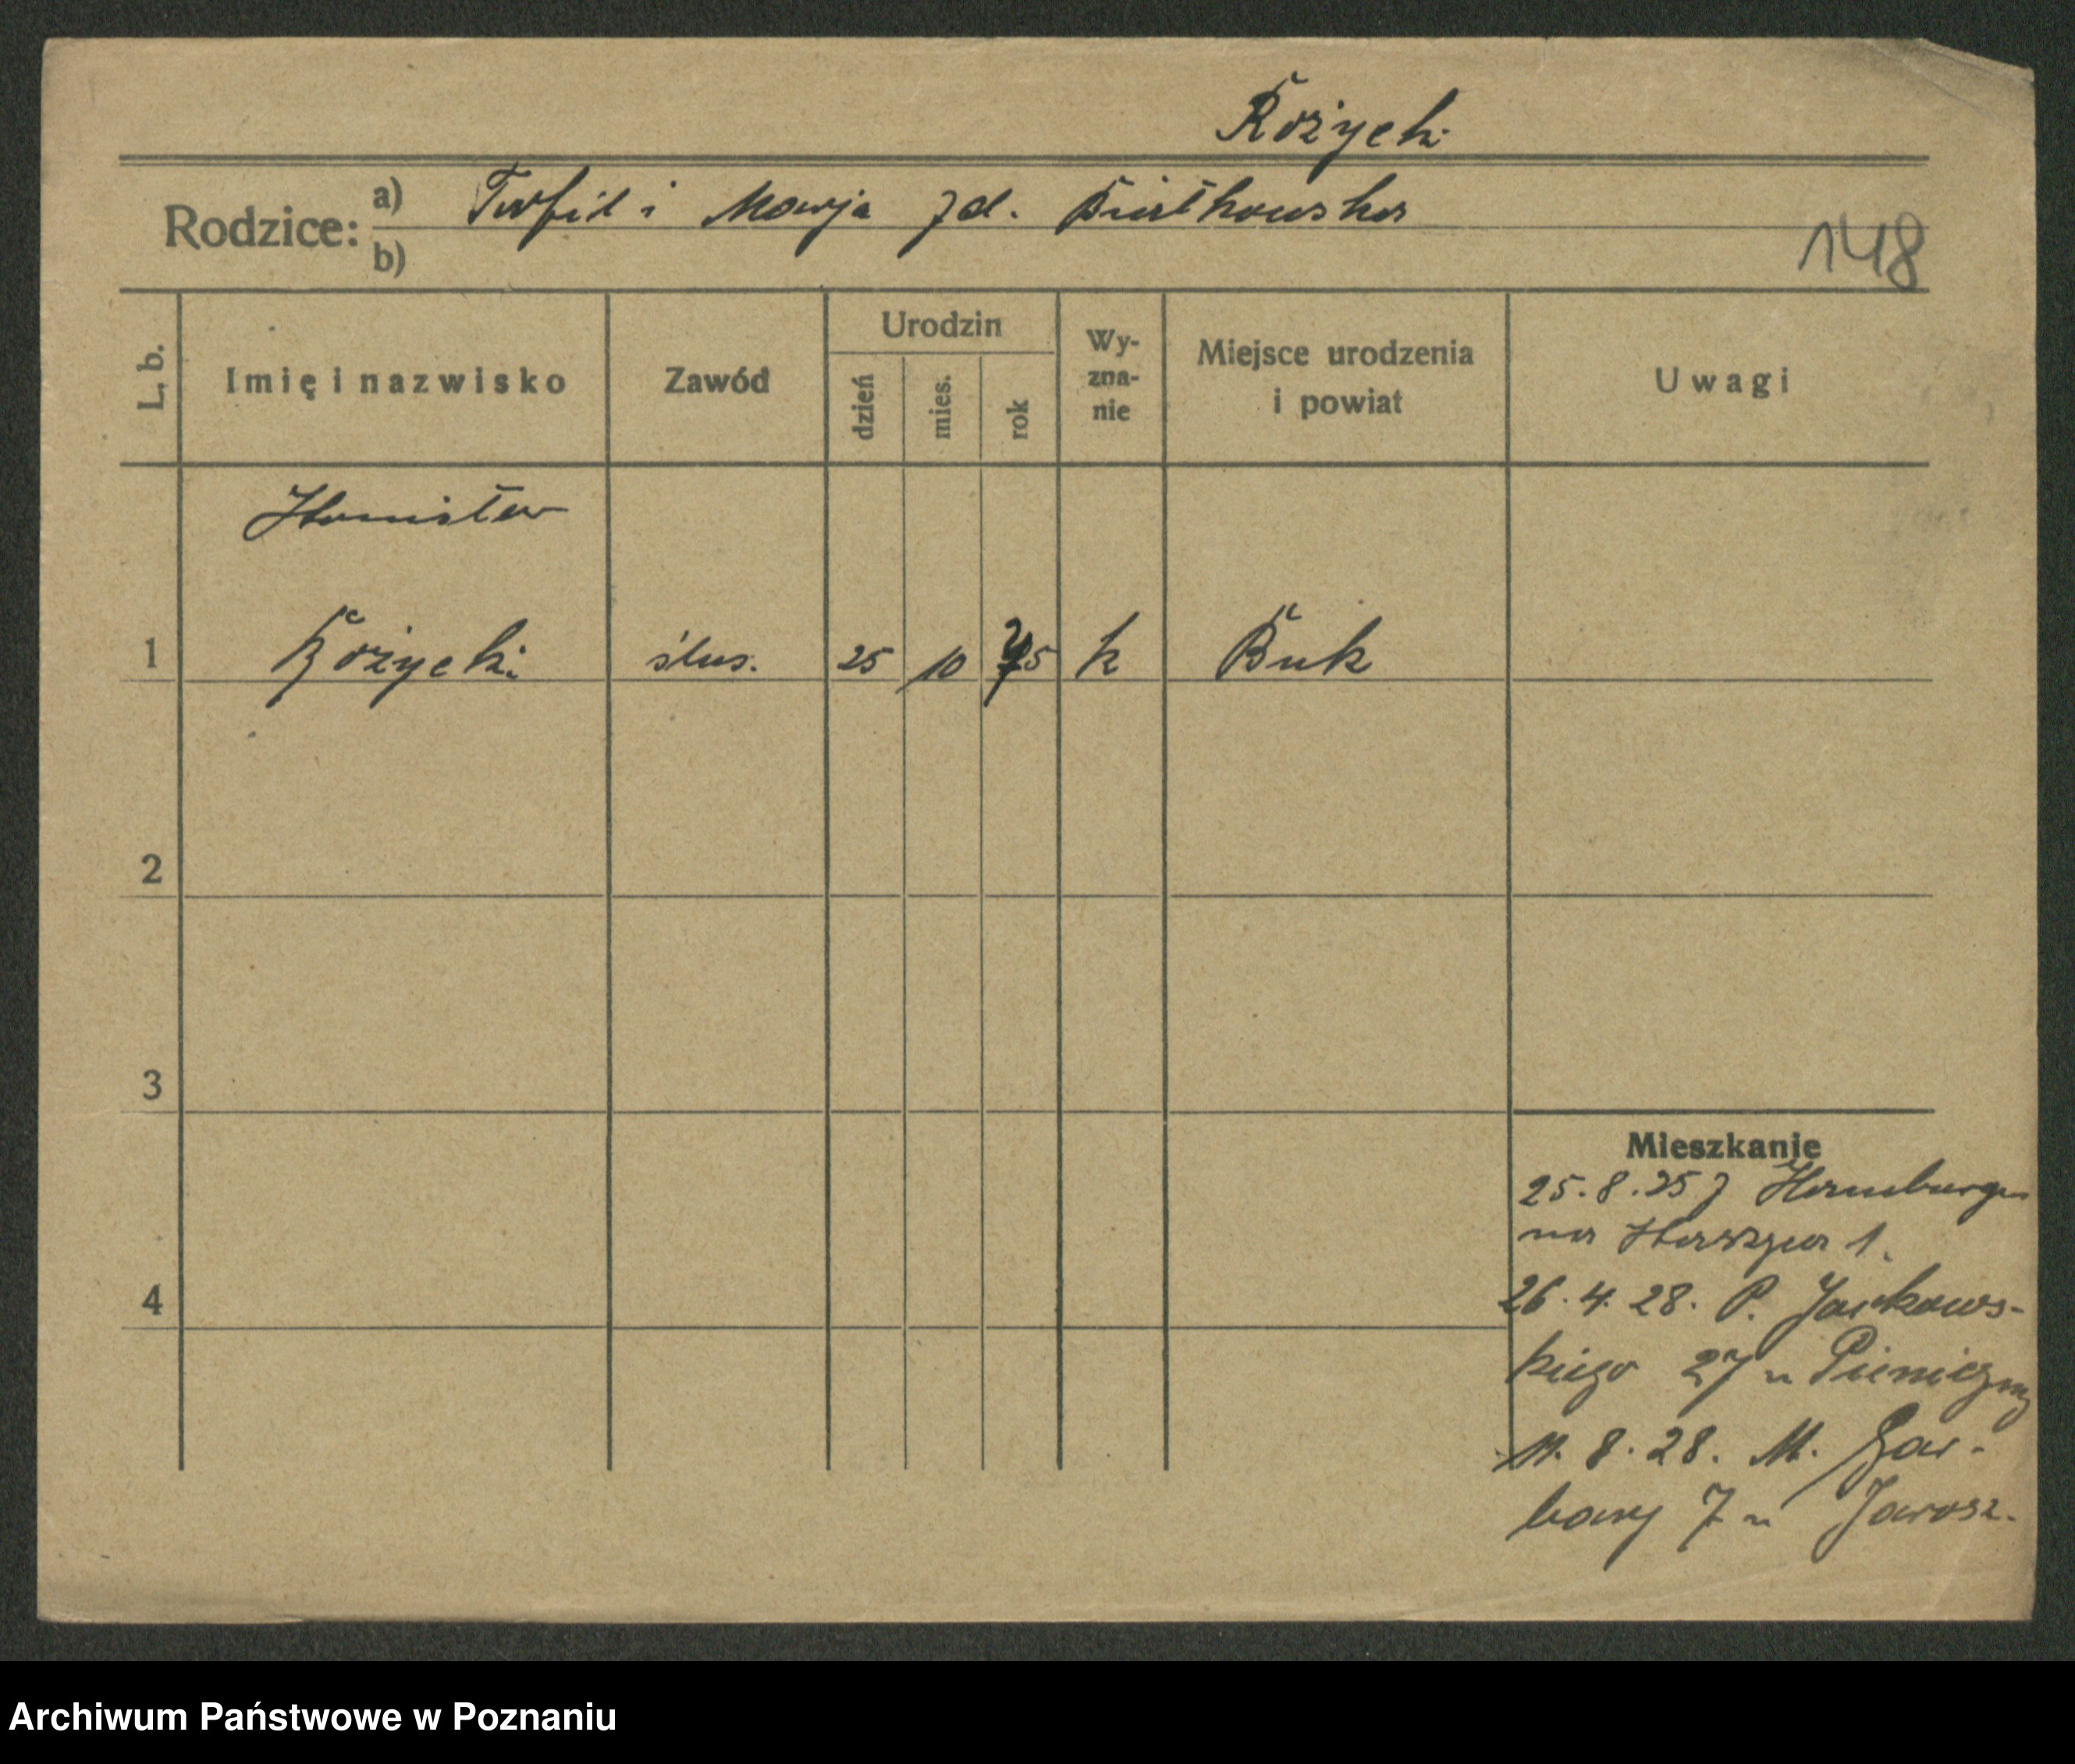 Rożycki
Rodzice: a) Teofil i Marja zd. Białkowska
b)
148
L. b. Imię i nazwisko Zawód Urodzin dzień mies. rok Wy-zna-nie Miejsce urodzenia i powiat Uwagi
Stanisław
1 Rożycki ślus. 25 10 5 k Buk
2
3
Mieszkanie
25.8.25 z Hamburga
na Staszyca 1.
4
26.4.28. P. Jackows-
kiego 27 u
11.8.28. M. Gar-
bary 7 u Jarosz.
Archiwum Państwowe w Poznaniu